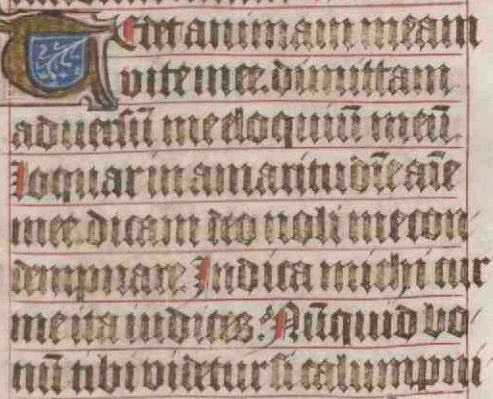 Tedet animam meam
vite mee. dimittam
aduersū me eloquiū meū.
loquar in amaritudīe aīe
mee. dicam deo noli me con
dempnare Indica michi cur
me ita iudices. Nūquid bo
nū tibi videtur si calumpni